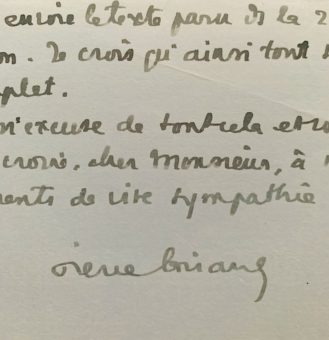 envoie le texte paru ds la 2
n. Je crois qu'ainsi tout
plet.
m'excuse de tout cela et v
croire, cher Monsieur, à
ments de vive sympathie